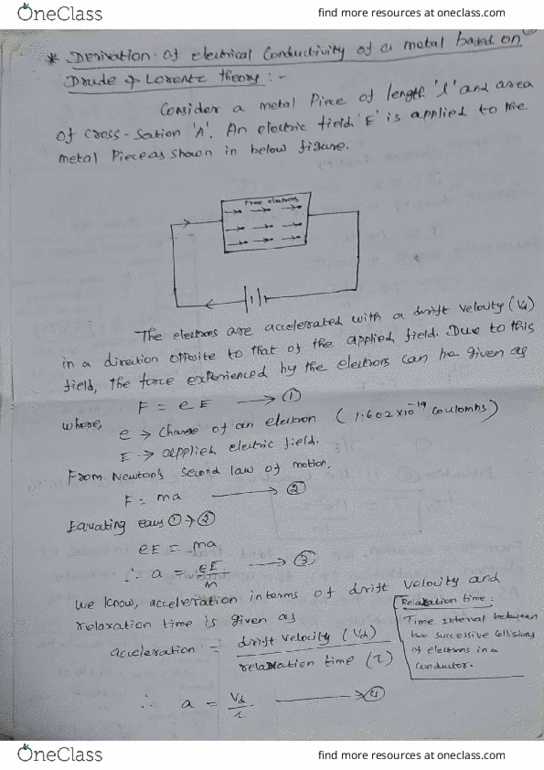 OneClass
find more resources at oneclass.com
* Derivation of electrical Conductivity of a metal based on
Drude & Lorentz theory :-
Consider a metal Piece of length 'l' and area
of cross-section 'A'. An electric field 'E' is applied to the
metal Piece as shown in below figure.
Free electrons
The electrons are accelerated with a drift velocity (Vd)
in a direction opposite to that of the applied field. Due to this
field, the force experienced by the electrons can be given as
F = eE → ①
where,
e → Charge of an electron (1.602×10⁻¹⁹ Coulombs)
E → applied electric field.
From Newton's second law of motion,
F = ma → ②
Equating eqns ① & ②
eE = ma
∴ a = eE/m → ③
We know, acceleration interms of drift velocity and
relaxation time is given as
acceleration = drift velocity (Vd) / relaxation time (τ)
Relaxation time:
Time interval between
two successive collisions
of electrons in a
conductor.
∴ a = Vd/τ → ④
OneClass
find more resources at oneclass.com